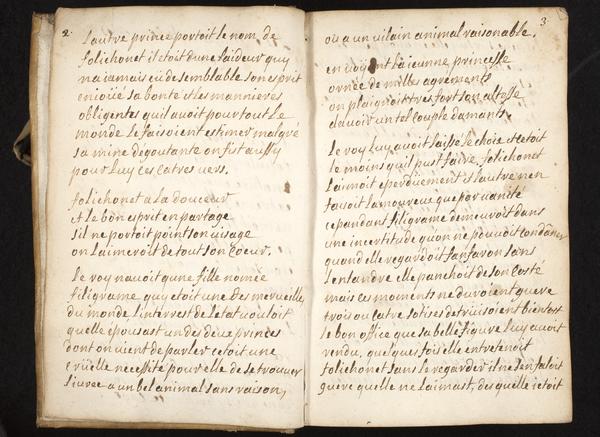 2.
Lautre prince portoit le nom, de
folichonet il etoit dune laideur quy
na jamais eü de semblable son esprit
enjoüé sa bonté et les mannieres
obligentes quil avoit pour tout le
monde le faisoient estimer malgré
sa mine degoutante on fist aussy
pour luy ces catres vers.
folichonet a la douceur
et le bon esprit en partage
sil ne portoit point son visage
on laimeroit de tout son coeur.
Le roy navoit qune fille nomée
filigrame quy etoit une des merveilles
du monde linterest de letat vouloit
quelle épousast un des deux princes
dont on vient de parler cetoit une
crüelle necessité pour elle de se trouver
livrée a un bel animal sans raison,
3
ou a un vilain animal raisonable.
en voyant la jeunne princesse
ornée de milles agréments
on plaignoit tres fort son altesse
davoir un tel couple damants.
Le roy luy avoit laissé le choix cetoit
le moins quil pust faire, folichonet
laimoit eperdüement et lautre nen
faisoit lamoureux que par vanité
cependant filigrame demeuroit dans
une incertitude quon ne pouvoit condamner
quand elle regardoit fanfaron sans
lentandre elle panchoit de son costé
mais ces moments ne duroient guere
trois ou catre sotises detruisoient bientost
le bon office que sa belle figure luy avoit
rendu, quelquefois elle entretenoit
folichonet sans le regarder il ne sen faloit
guere quelle ne laimast, des quelle jetoit